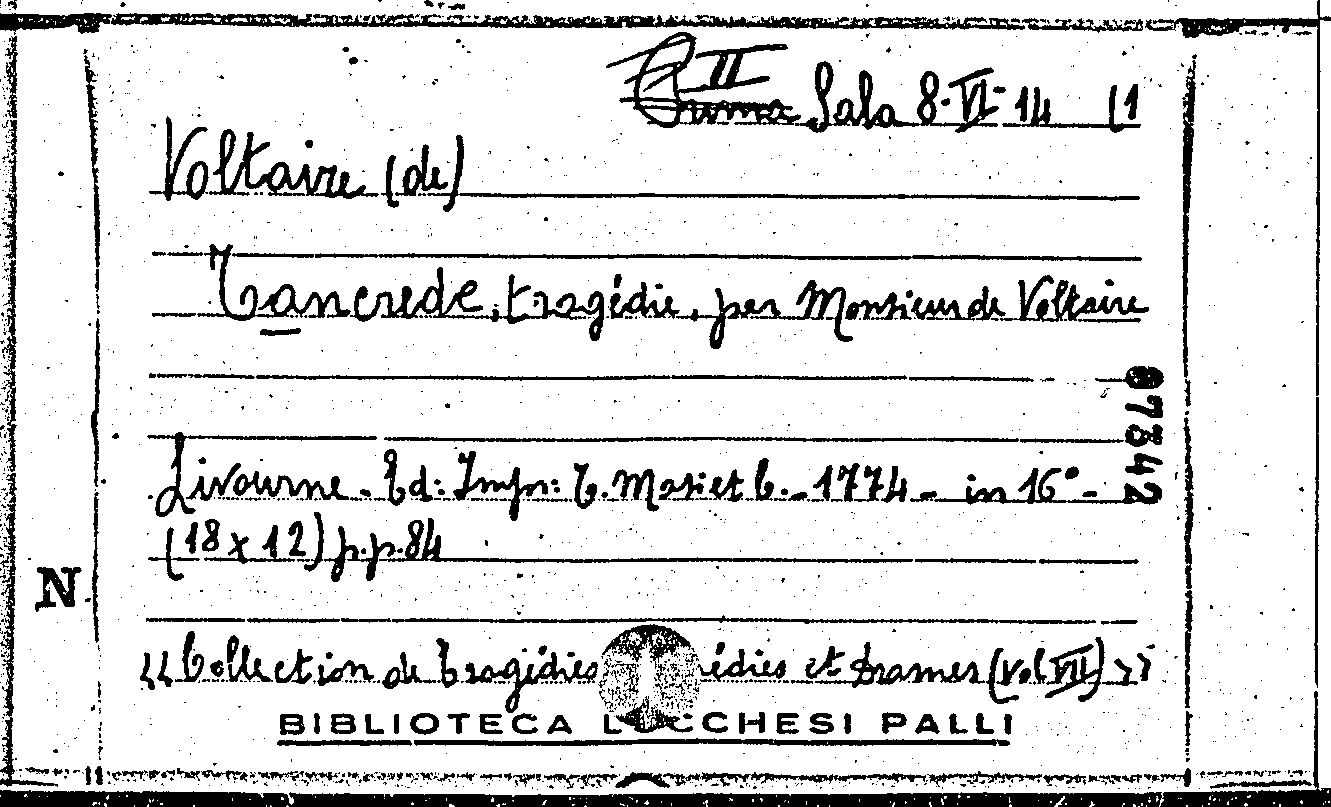 II
Prima Sala 8-VI-14 (1
Voltaire (de)
Tancrede, tragédie, per Monsieur de Voltaire
67842
Livourne - Ed: Impr: T. Masi et C. - 1774 - in 16° -
(18 x 12) p.p. 84
N
<<Collection de tragédies édies et drames (Vol VII)>>
BIBLIOTECA LUCCHESI PALLI